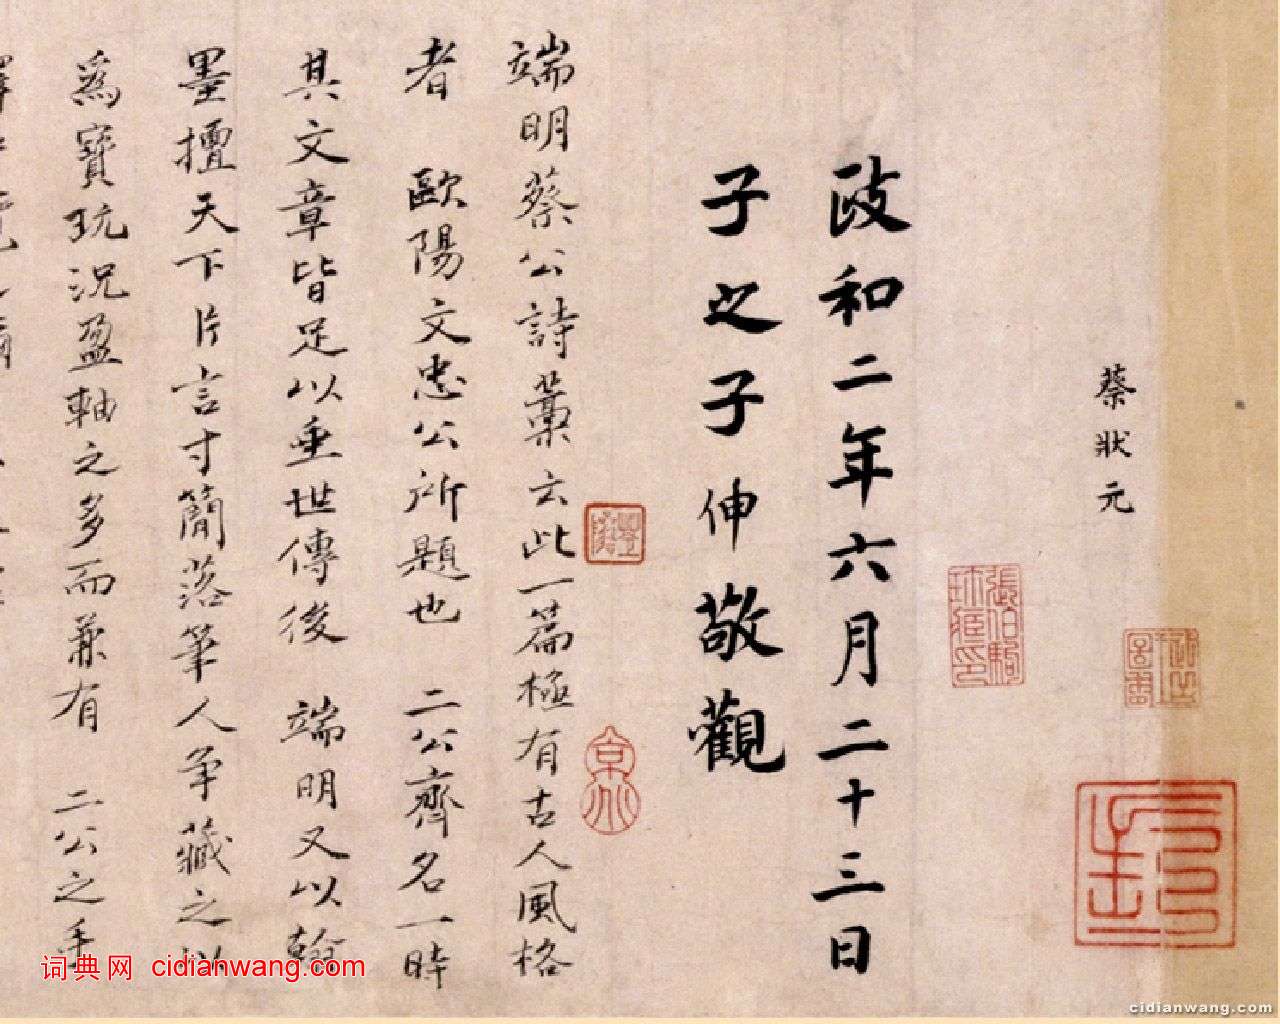 蔡狀元
張伯駒珍藏印
政和二年六月二十三日
子之子伸敬觀
端明蔡公詩藁云此一篇極有古人風格
者 歐陽文忠公所題也 二公齊名一時
其文章皆足以垂世傳後 端明又以翰
墨擅天下片言寸簡落筆人爭藏之以
為寶玩況盈軸之多而兼有 二公之手
词典网 cidianwang.com
cidianwang.com